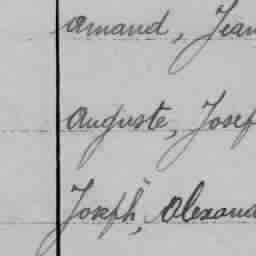 Armand, Jean
Auguste, Josef
Joseph, Alexand